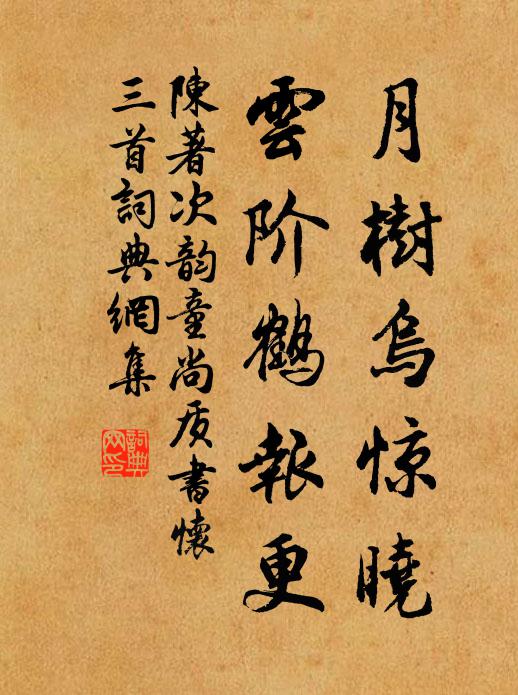 月樹烏惊曉
雲阶鶴報更
陳著次韵童尚质書懷
三首詞典網集
詞典网印